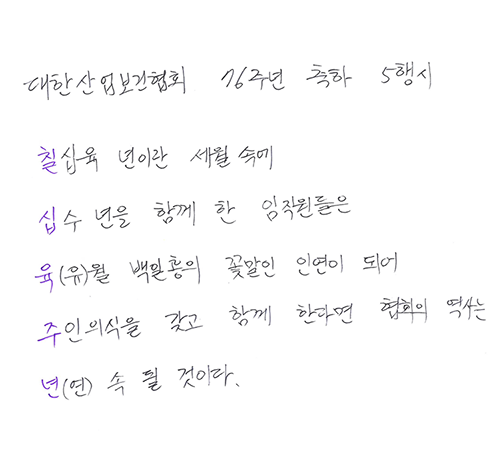 대한산업보건협회 76주년 축하 5행시
칠십육 년이란 세월 속에
십수 년을 함께 한 임직원들은
육(유)월 백일홍의 꽃말인 인연이 되어
주인의식을 갖고 함께 한다면 협회의 역사는
년(연) 속 될 것이다.